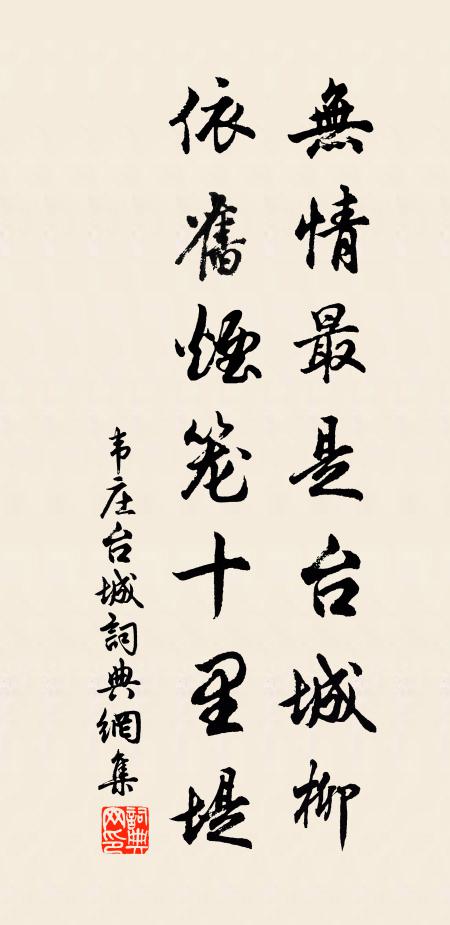 無情最是台城柳
依舊煙笼十里堤
韦庄台城詞典網集
詞典
网印